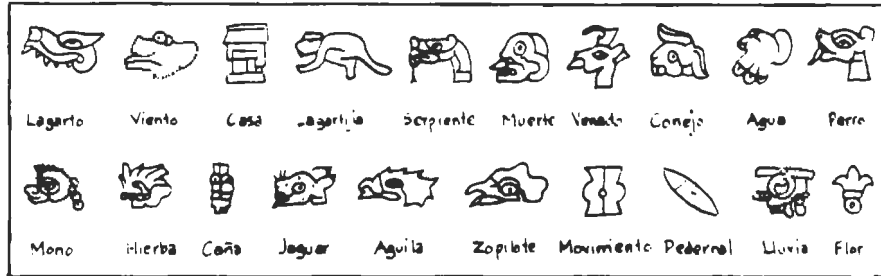 Lagarto Viento Casa Lagartija Serpiente Muerte Venado Conejo Agua Perro
Mono Hierba Caña Jaguar Aguila Zopilote Movimiento Pedernal Lluvia Flor